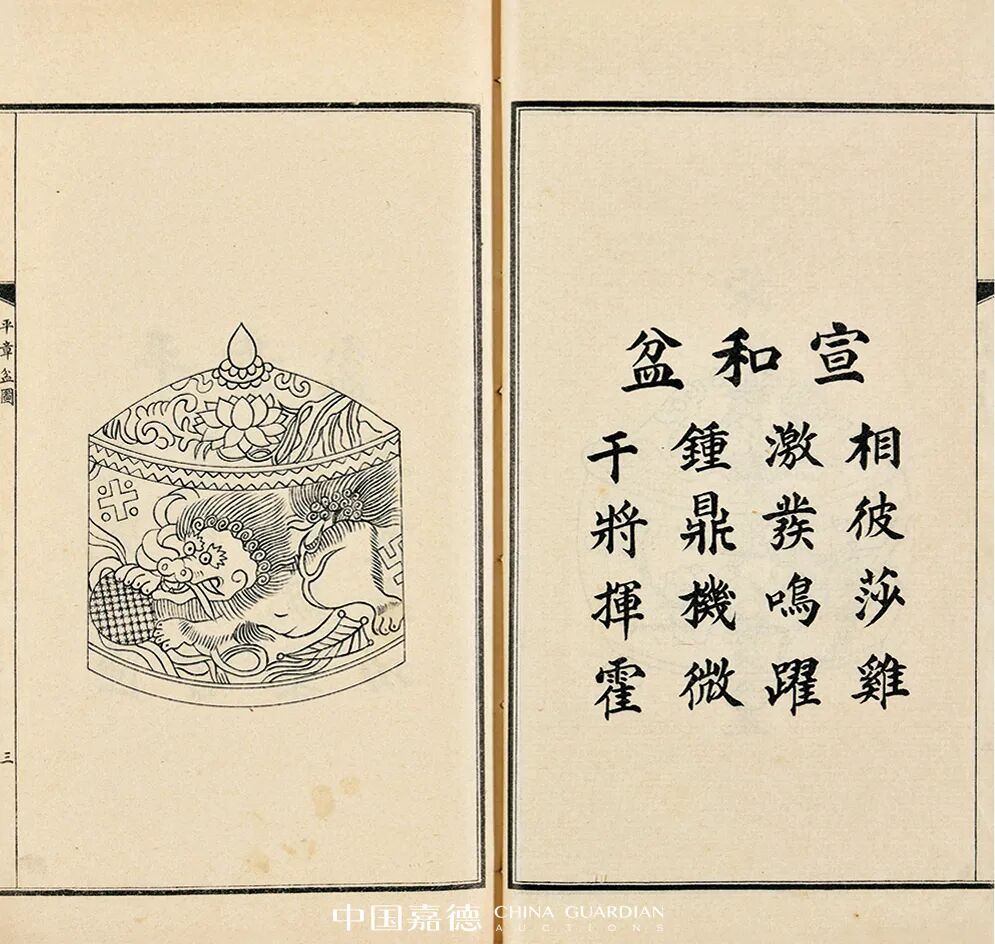 宣和盆
相彼莎雞
激發鳴躍
鍾鼎機微
干將揮霍
平章盆圖
三
中国嘉德 CHINA GUARDIAN
AUCTIONS